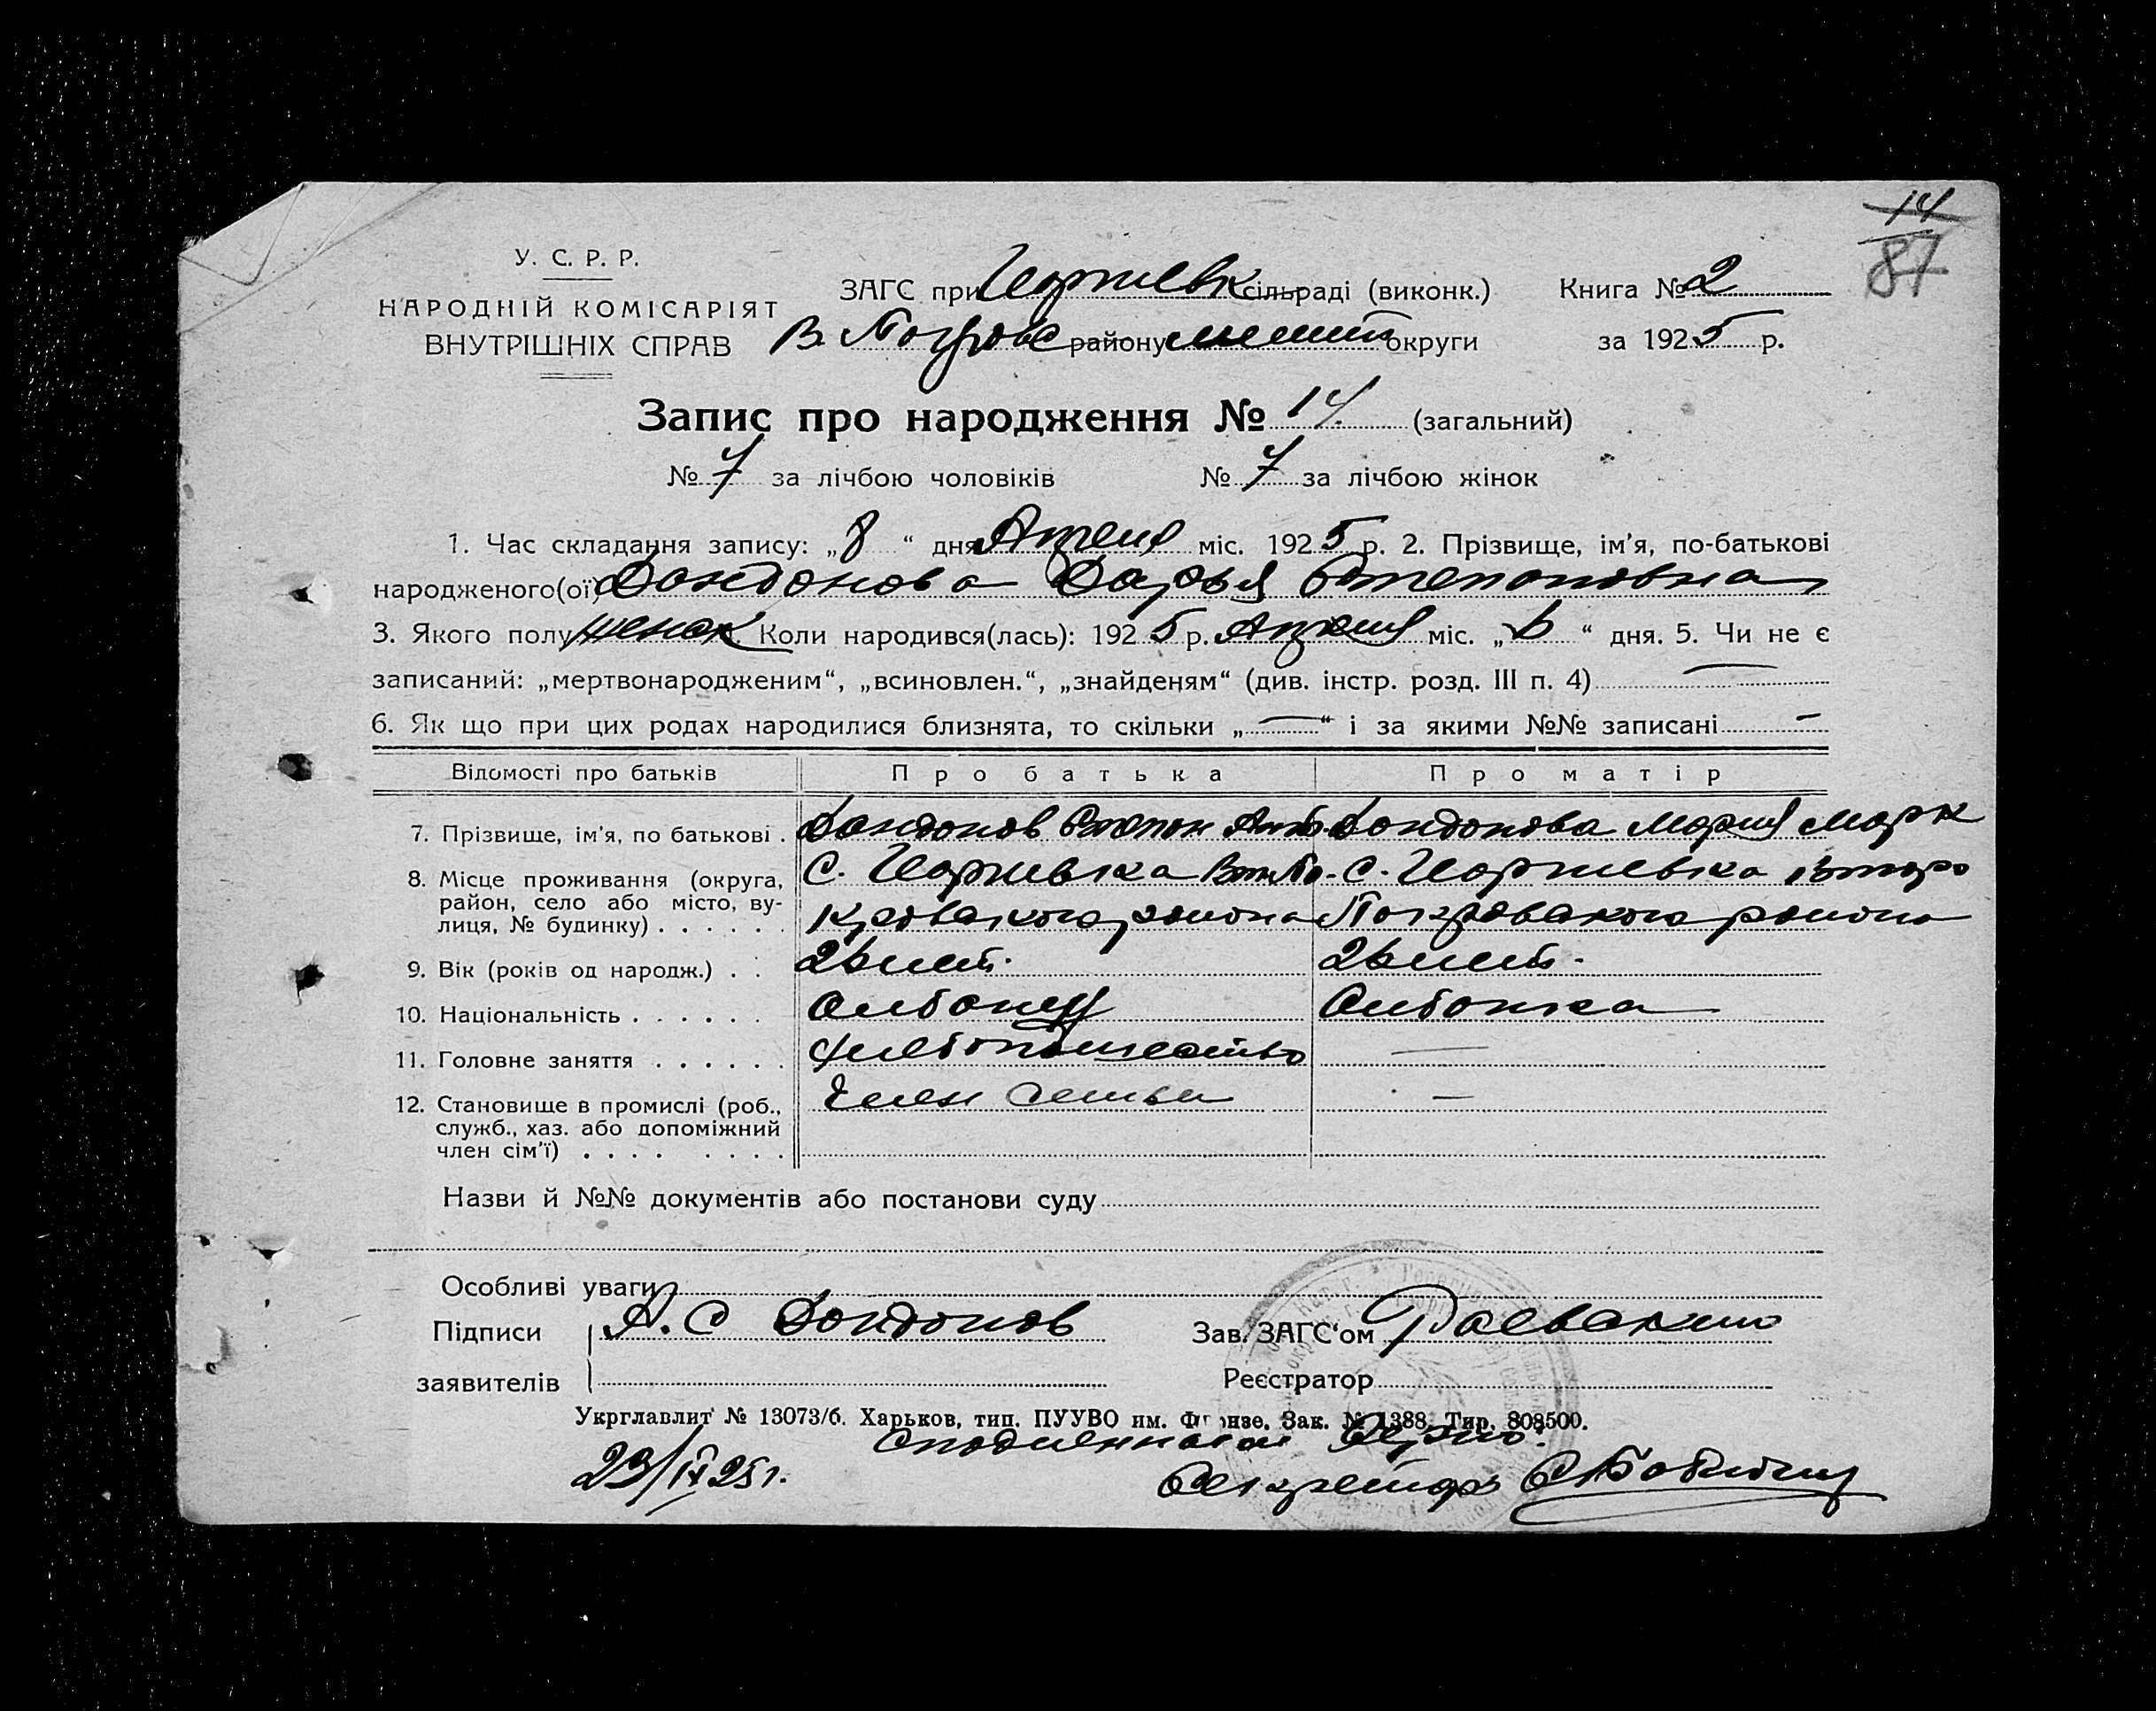 14
87
У. С. Р. Р.
НАРОДНІЙ КОМІСАРІЯТ
ВНУТРІШНІХ СПРАВ
ЗАГС при Георгиевк сільраді (виконк.) Книга № 2
В. Покровс району Мелит округи за 1925 р.
Запис про народження № 14. (загальний)
№ 7 за лічбою чоловіків № 7 за лічбою жінок
1. Час складання запису: „8“ дня Апреля міс. 1925 р. 2. Прізвище, ім'я, по-батькові
народженого(ої) Дондонова Дарья Степановна
3. Якого полу женск Коли народився(лась): 1925 р. Апреля міс. „6“ дня. 5. Чи не є
записаний: „мертвонародженим“, „всиновлен.“, „знайденям“ (див. інстр. розд. III п. 4) —
6. Як що при цих родах народилися близнята, то скільки „—“ і за якими №№ записані —
Відомості про батьків Про батька Про матір
7. Прізвище, ім'я, по батькові . Дондонов Степан Дондонова Мария Марк
8. Місце проживання (округа, район, село або місто, вулиця, № будинку) . . . . . . С. Георгиевка Вт. По- С. Георгиевка Второ
кровского района Покровского района
9. Вік (років од народж.) . . 26 лет. 26 лет.
10. Національність . . . . . . Албанец Албанка
11. Головне заняття . . . . . . хлебопашество —
12. Становище в промислі (роб., служб., хаз. або допоміжний член сім'ї) . . . . . . . . Член семьи —
Назви й №№ документів або постанови суду
Особливі уваги
Підписи А. С Дондонов Зав. ЗАГС'ом Раевский
заявителів Реєстратор
Укрглавлит № 13073/6. Харьков, тип. ПУУВО им. Фрунзе. Зак. № 1388. Тир. 808500.
С подлинным верно:
23/IV 25 г. Секретарь